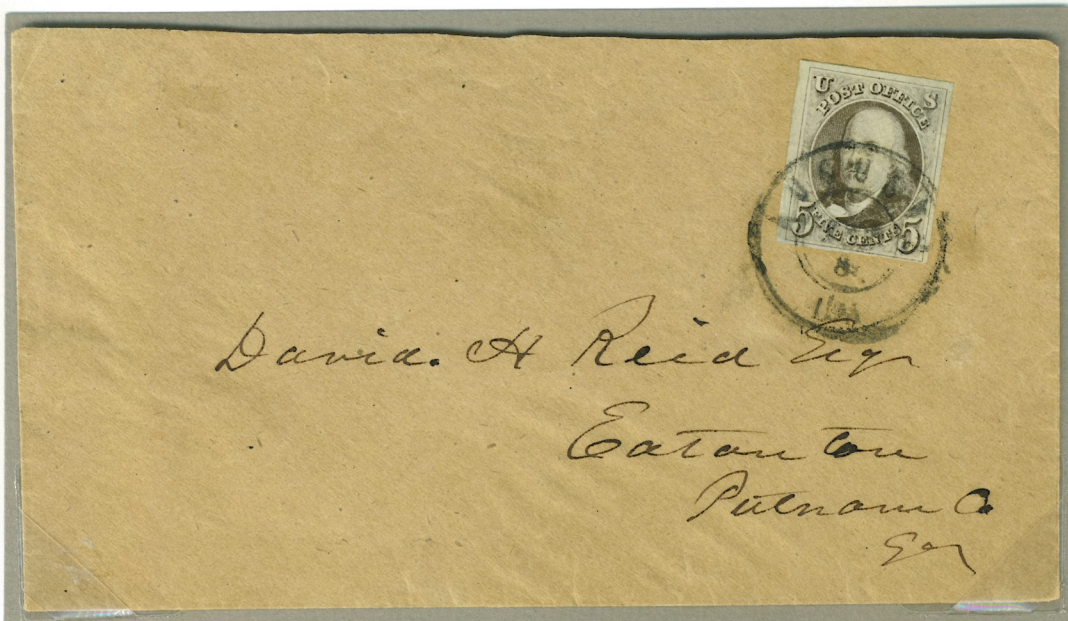 U S
POST OFFICE
5 FIVE CENTS 5
8
David. H Reid Esqr
Eatonton
Putnam Co
Ga